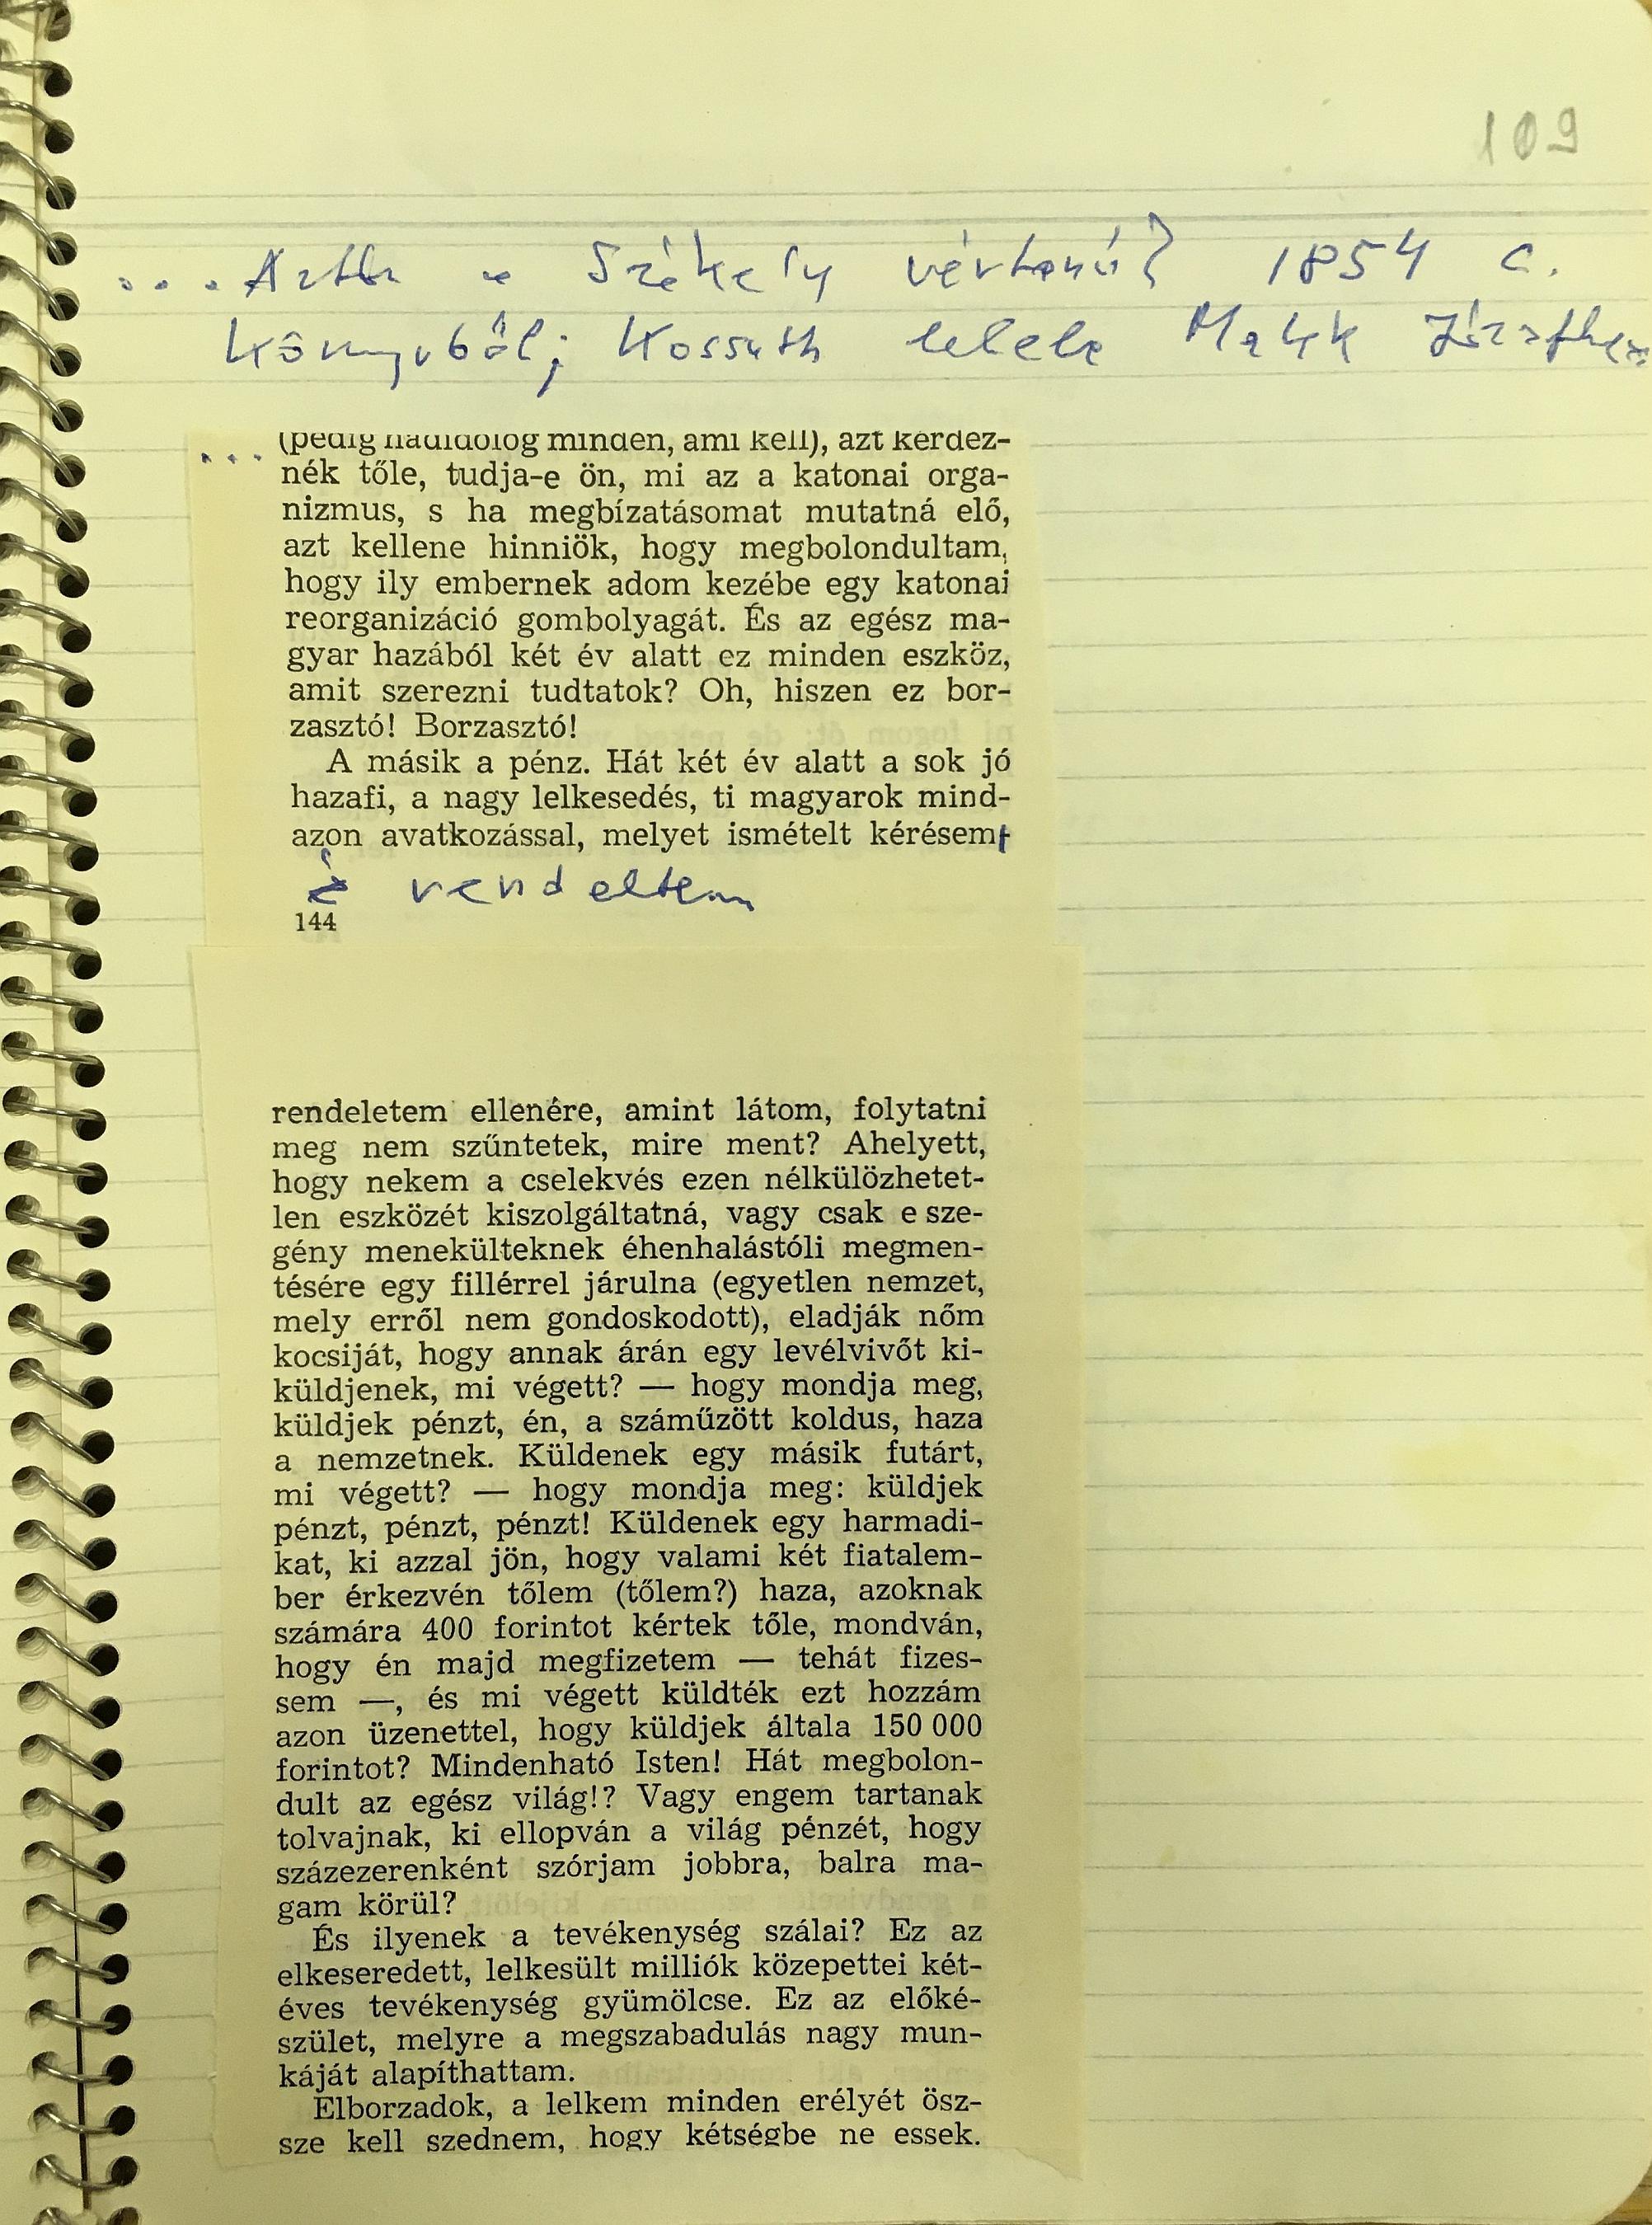 109
... a Székely vértanúk 1854 c.
könyvből; Kossuth levele Makk Józsefhez
... (pedig hadidolog minden, ami kell), azt kérdez-
nék tőle, tudja-e ön, mi az a katonai orga-
nizmus, s ha megbízatásomat mutatná elő,
azt kellene hinniök, hogy megbolondultam,
hogy ily embernek adom kezébe egy katonai
reorganizáció gombolyagát. És az egész ma-
gyar hazából két év alatt ez minden eszköz,
amit szerezni tudtatok? Oh, hiszen ez bor-
zasztó! Borzasztó!
A másik a pénz. Hát két év alatt a sok jó
hazafi, a nagy lelkesedés, ti magyarok mind-
azon avatkozással, melyet ismételt kérésem
144
rendeletem ellenére, amint látom, folytatni
meg nem szűntetek, mire ment? Ahelyett,
hogy nekem a cselekvés ezen nélkülözhetet-
len eszközét kiszolgáltatná, vagy csak e sze-
gény menekülteknek éhenhalástóli megmen-
tésére egy fillérrel járulna (egyetlen nemzet,
mely erről nem gondoskodott), eladják nőm
kocsiját, hogy annak árán egy levélvivőt ki-
küldjenek, mi végett? — hogy mondja meg,
küldjek pénzt, én, a száműzött koldus, haza
a nemzetnek. Küldenek egy másik futárt,
mi végett? — hogy mondja meg: küldjek
pénzt, pénzt, pénzt! Küldenek egy harmadi-
kat, ki azzal jön, hogy valami két fiatalem-
ber érkezvén tőlem (tőlem?) haza, azoknak
számára 400 forintot kértek tőle, mondván,
hogy én majd megfizetem — tehát fizes-
sem —, és mi végett küldték ezt hozzám
azon üzenettel, hogy küldjek általa 150 000
forintot? Mindenható Isten! Hát megbolon-
dult az egész világ!? Vagy engem tartanak
tolvajnak, ki ellopván a világ pénzét, hogy
százezerenként szórjam jobbra, balra ma-
gam körül?
És ilyenek a tevékenység szálai? Ez az
elkeseredett, lelkesült milliók közepettei két-
éves tevékenység gyümölcse. Ez az előké-
szület, melyre a megszabadulás nagy mun-
káját alapíthattam.
Elborzadok, a lelkem minden erélyét ösz-
sze kell szednem, hogy kétségbe ne essek.